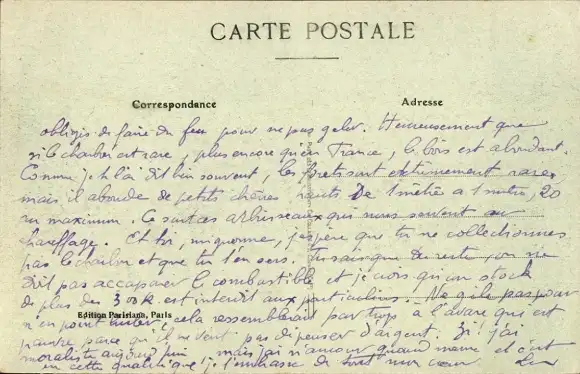 CARTE POSTALE
Correspondance
Adresse
obligés de faire du feu pour ne pas geler. Heureusement que
si le charbon est rare, plus encore qu'en France, le bois est abondant.
Comme je te l'ai dit bien souvent, les forêts sont extrêmement rares
mais il abonde de petits chênes hauts de 1 mètre à 1 mètre, 20
au maximum. Ce sont ces arbrisseaux qui nous servent au
chauffage. Et toi, mignonne, j'espère que tu ne collectionnes
pas le charbon et que tu t'en sers. Tu sais que du reste, on ne
doit pas accaparer le combustible et je crois qu'un stock
de plus de 300 k. est interdit aux particuliers. Ne va pas pour
n'en point user, cela ressemblerait par trop à l'avare qui est
Edition Parisiana, Paris
pauvre parce qu'il ne veut pas dépenser d'argent. Si j'ai
moraliste aujourd'hui, mais j'ai n'amour quand même et c'est
en cette qualité que je t'embrasse de tout mon cœur